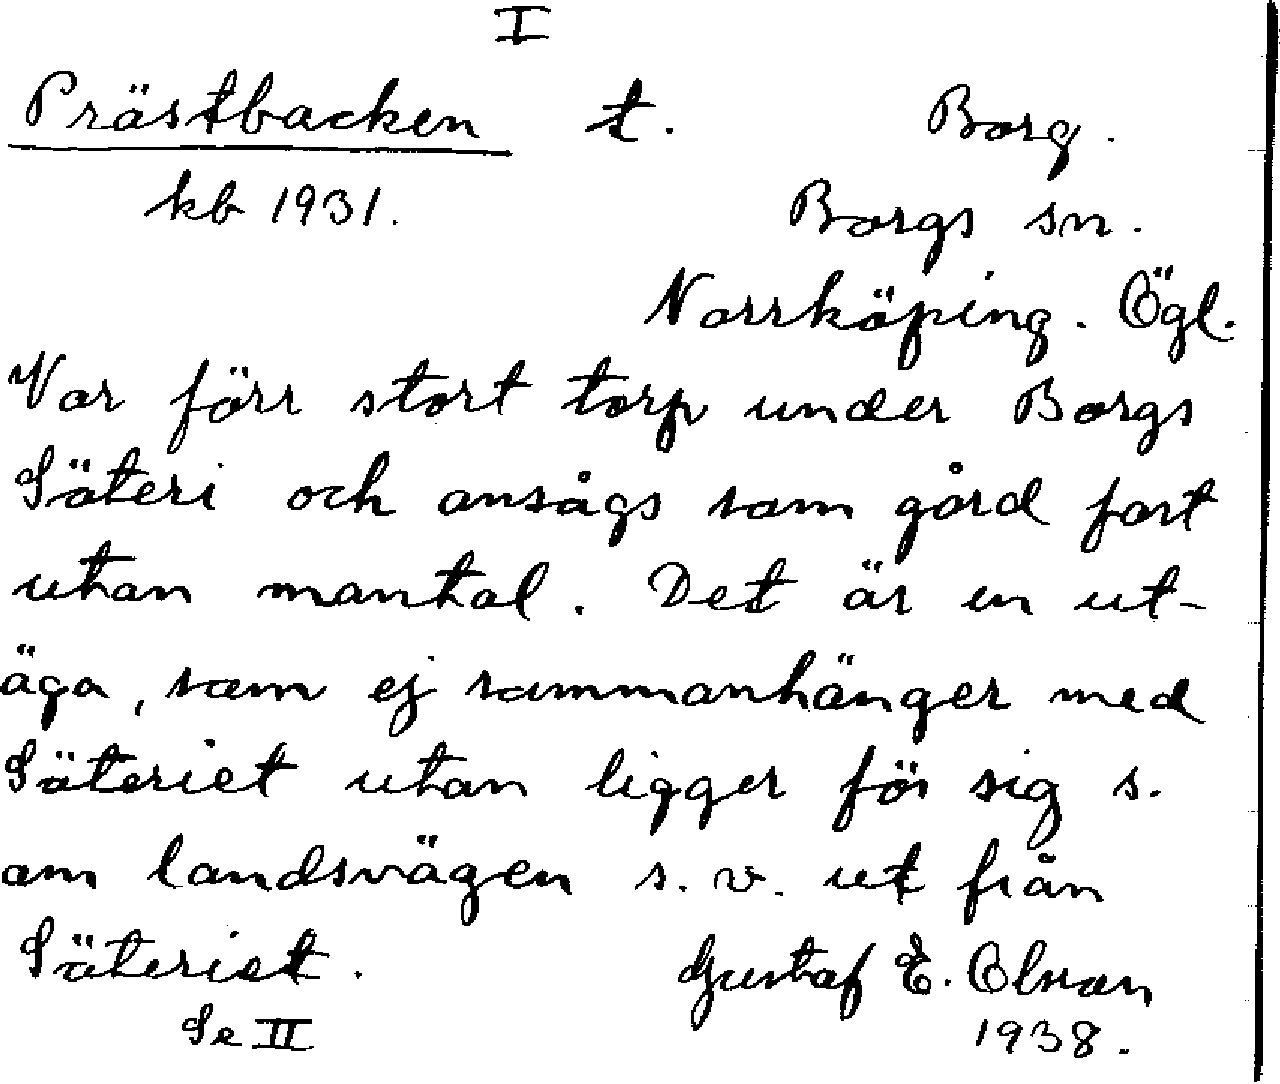 I
Prästbacken t. Borg.
kb 1931. Borgs sn.
Norrköping. Ögl.
Var förr stort torp under Borgs
Säteri och ansågs som gård fast
utan mantal. Det är en ut-
äga, som ej sammanhänger med
Säteriet utan ligger för sig s.
om landsvägen s. v. ut från
Säteriet. Gustaf E. Olson
Se II 1938.